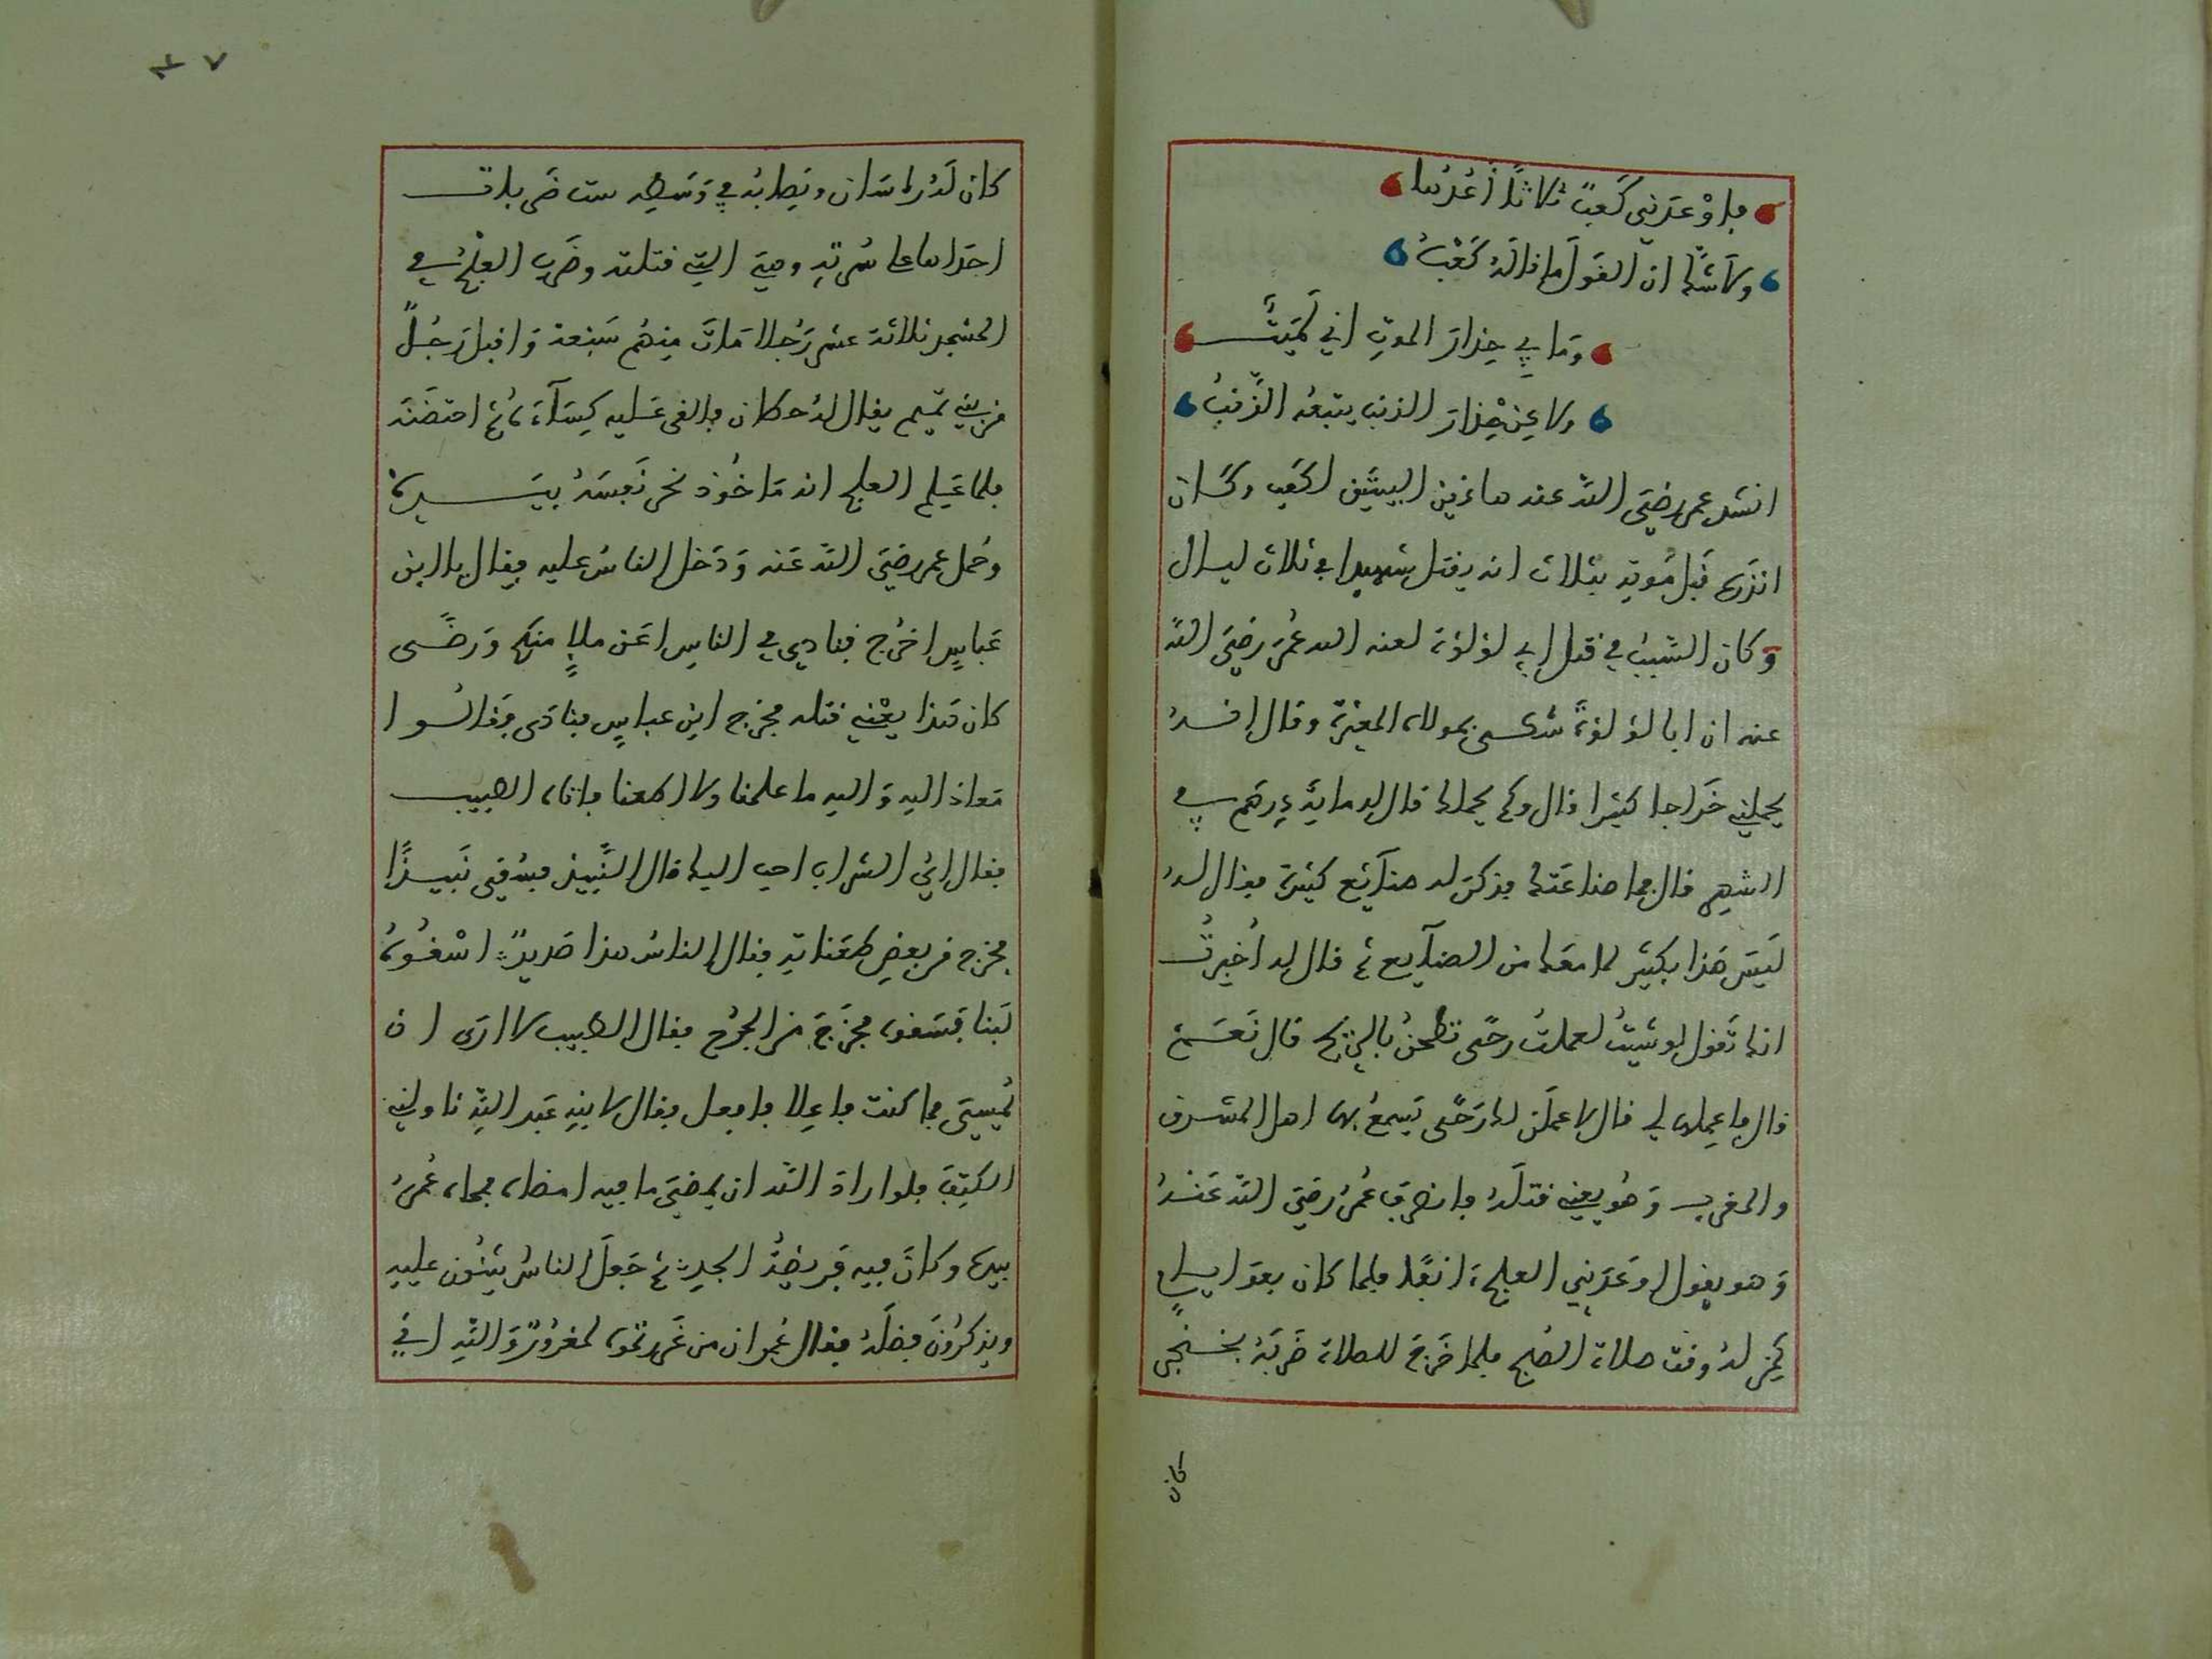 فاوعدني كعب ثلاثا أعدها
ولا شك ان القول ما قاله كعب
وما بي حذار الموت اني لميت
ولا عن حذار الذنب يتبعه الذنب
انشد عمر رضي الله عنه هاذين البيتين لكعب وكان
انذره قبل موته بثلاث انه يقتل شهيدا في ثلاث ليال
وكان السبب في قتل ابي لؤلؤة لعنه الله عمر رضي الله
عنه ان ابا لؤلؤة شكى بمولاه المغيرة وقال انه
يحملني خراجا كثيرا قال وكم يحملك قال له ماية درهم في
الشهر قال فما صناعتك فذكر له صنآئع كثيرة فقال له
ليس هذا بكثير لما معك من الصنآيع ثم قال له أخبرت
انك تقول لو شيت لعملت رحى تطحن بالريح قال نعم
قال فاعملها لي قال لاعملن لك رحى يسمع بها اهل المشرق
والمغرب وهو يعني قتله فانصرف عمر رضي الله عنه
وهو يقول اوعدني العلج انفا فلما كان بعد ليال
كمن له وقت صلاة الصبح فلما خرج للصلاة ضربه بخنجر
كان
٣٧
كان له راسان ونصابه في وسطه ست ضربات
احداها على سرته وهي التي قتلته وضرب العلج في
المسجد ثلاثة عشر رجلا مات منهم سبعة واقبل رجل
من بني تميم يقال له حطان فالقى عليه كسآء ثم احتضنه
فلما علم العلج انه ماخوذ نحر نفسه بيده
وحمل عمر رضي الله عنه ودخل الناس عليه فقال يا ابن
عباس اخرج فنادي في الناس اعن ملإ منهم ورضى
كان هذا يعني قتله فخرج ابن عباس فنادى فقالوا
معاذ اليه واليه ما علمنا ولا اطعنا فاتاه الطبيب
فقال اي الشراب احب اليك قال النبيذ فسقي نبيذا
فخرج من بعض طعناته فقال الناس هذا صديد اسقوه
لبنا فسقوه فخرج من الجرح فقال الطبيب لا ارى ان
يمسي فما كنت فاعلا فافعل فقال لابنه عبد الله ناولني
الكتف فلو اراد الله ان يمضي ما فيه امضاه فمحاه عمر
بيده وكان فيه فريضة الجد ثم جعل الناس يثنون عليه
ويذكرون فضله فقال عمر ان من غررتموه لمغرور والله اني